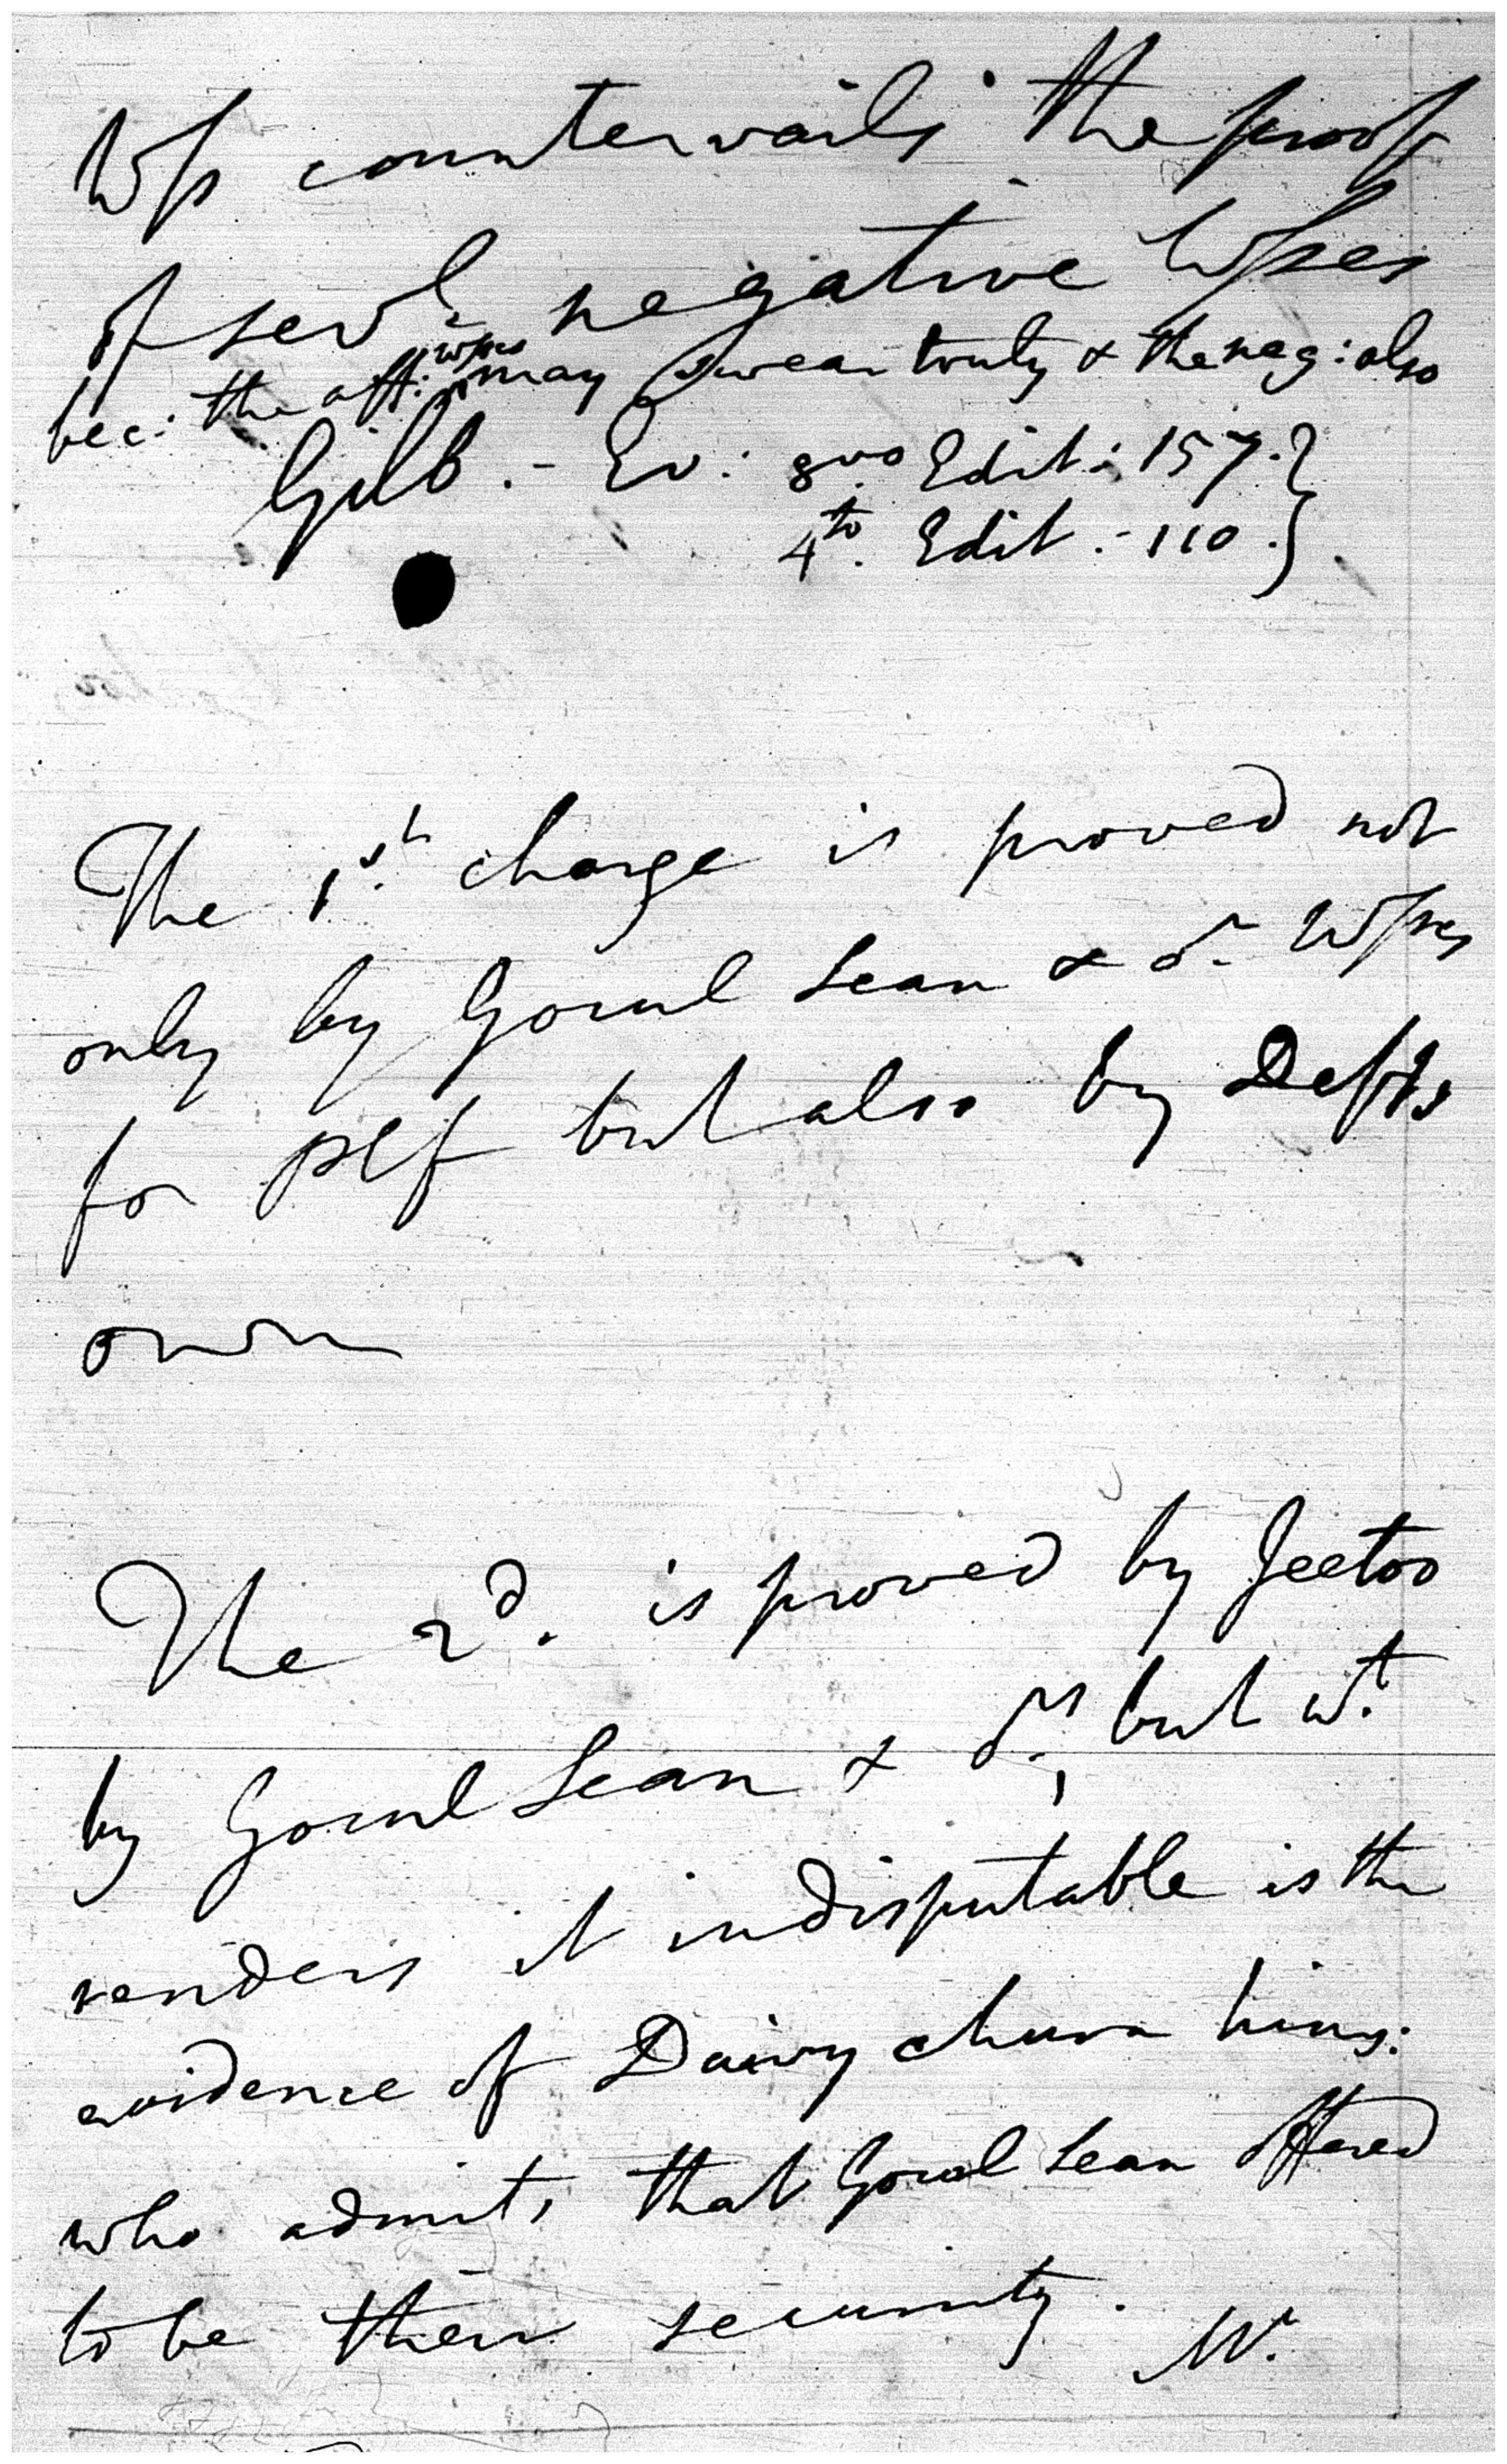 Wss countervails the proof
of sevl. negative Wsses
bec: the aff: wsses may swear truly & the neg: also
Gilb. - Ev: 8vo. Edit: 157.
4to. Edit. - 110.
The 1st. charge is proved not
only by Gocul Sean & or. Wsses
for Plf but also by Defts
own
The 2d. is proved by Jeetoo
by Gocul Sean & ors., but wt.
renders it indisputable is the
evidence of Dainychurn
who admits that Gocul Sean offered
to be their security.